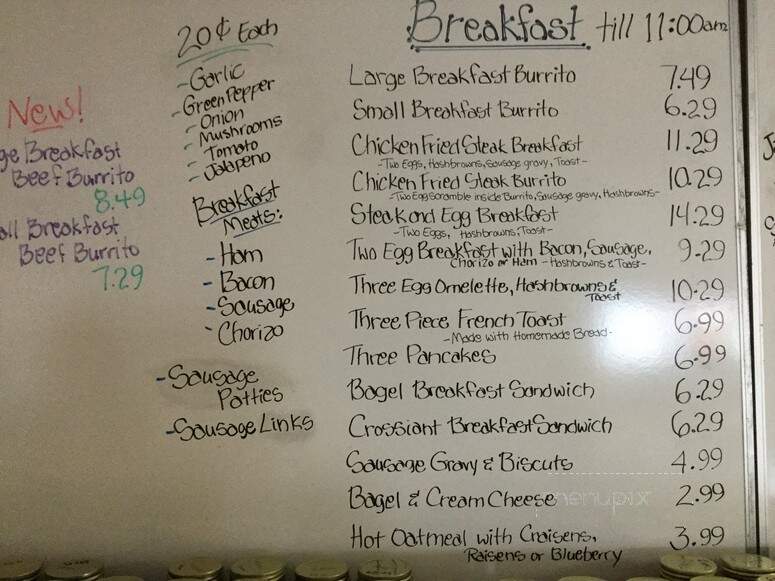 Breakfast till 11:00am
Large Breakfast Burrito 7.49
Small Breakfast Burrito 6.29
Chicken Fried Steak Breakfast 11.29
-Two Eggs, Hashbrowns, Sausage gravy, Toast-
Chicken Fried Steak Burrito 10.29
-Two Egg Scramble inside Burrito, Sausage gravy, Hashbrowns-
Steak and Egg Breakfast 14.29
-Two Eggs, Hashbrowns, Toast-
Two Egg Breakfast with Bacon, Sausage, 9.29
Chorizo or Ham -Hashbrowns & Toast-
Three Egg Omelette, Hashbrowns & 10.29
Toast
Three Piece French Toast 6.99
-Made with Homemade Bread-
Three Pancakes 6.99
Bagel Breakfast Sandwich 6.29
Crossiant Breakfast Sandwich 6.29
Sausage Gravy & Biscuts 4.99
Bagel & Cream Cheese 2.99
Hot Oatmeal with Craisens, 3.99
Raisens or Blueberry
20¢ Each
-Garlic
-Green Pepper
-Onion
-Mushrooms
-Tomato
-Jalapeno
Breakfast
Meats:
-Ham
-Bacon
-Sausage
-Chorizo
-Sausage
Patties
-Sausage Links
New!
ge Breakfast
Beef Burrito
8.49
all Breakfast
Beef Burrito
7.29
menupix